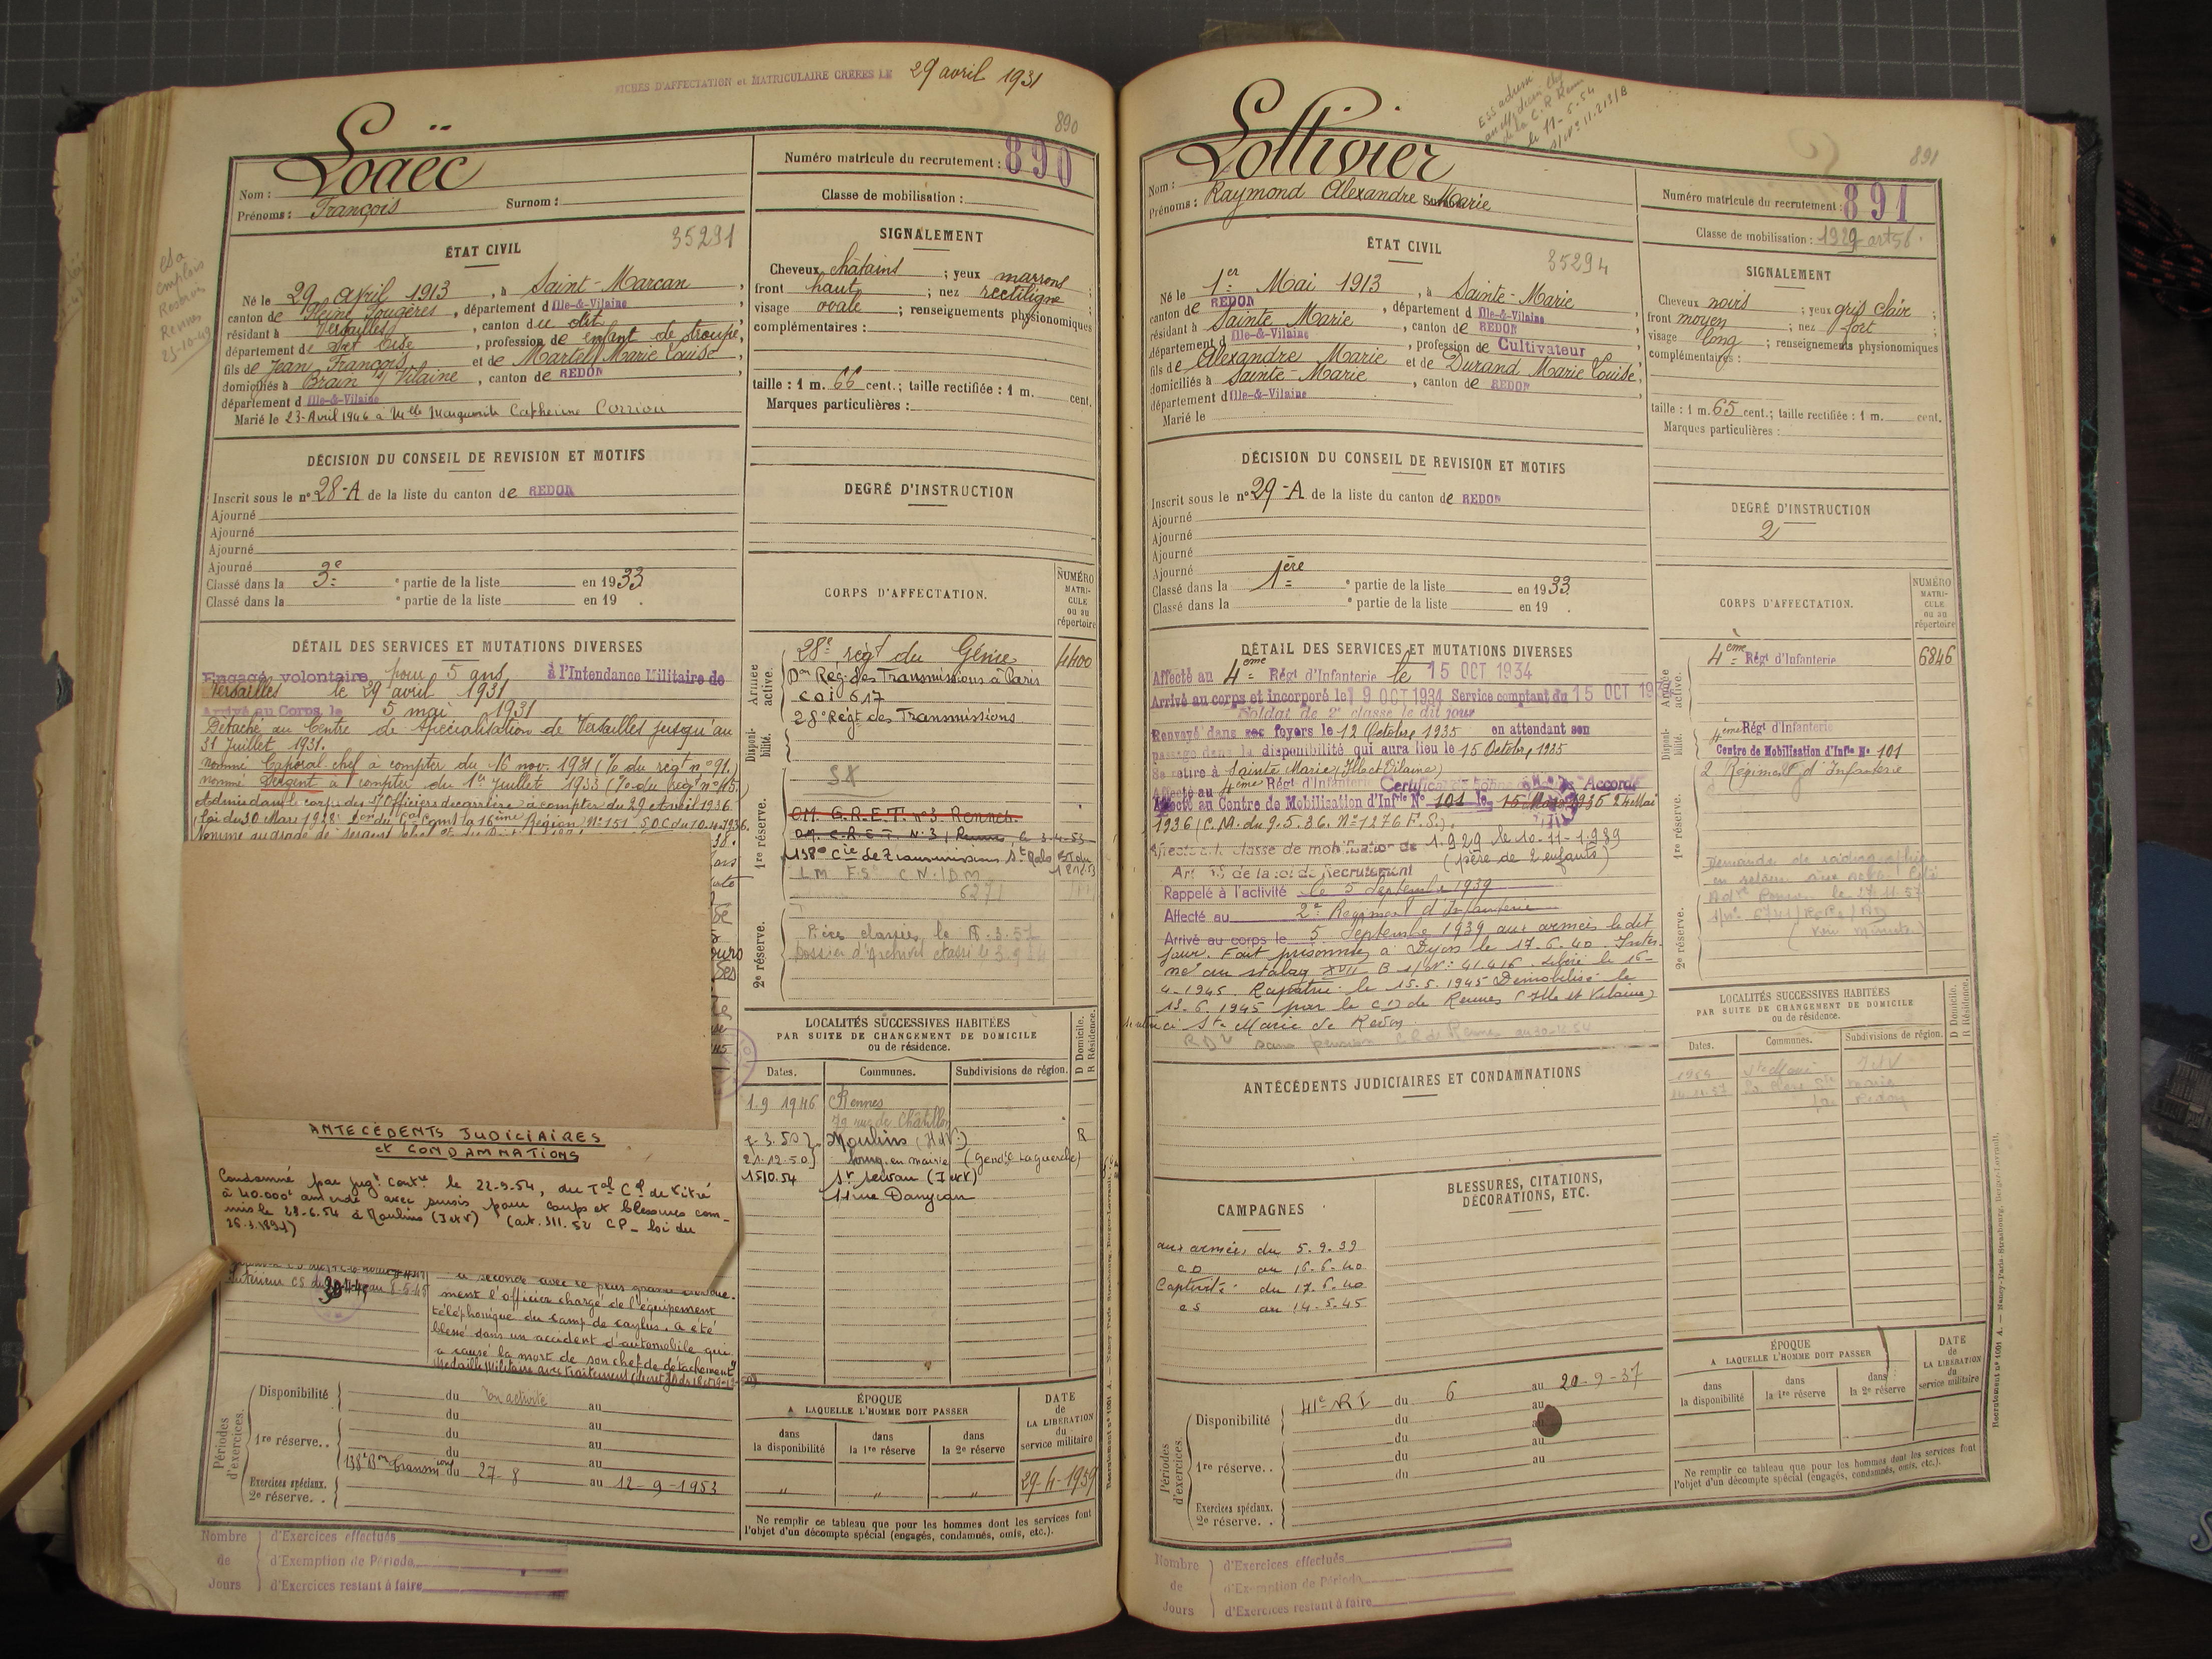 FICHES D'AFFECTATION et MATRICULAIRE CRÉÉES LE 29 avril 1931
890
Loaëc
Nom :
Prénoms : François Surnom :
Numéro matricule du recrutement : 890
Classe de mobilisation :
ÉTAT CIVIL
35291
Né le 29 avril 1913, à Saint-Marcan,
canton de Pleine Fougères, département d Ille-&-Vilaine
résidant à Versailles, canton du dit
département de Set Oise, profession de enfant de troupe,
fils de Jean François et de Martel Marie Louise,
domiciliés à Brain s/ Vilaine, canton de REDON,
département d Ille-&-Vilaine
Marié le 23 Avril 1946 à Melle Marguerite Catherine Corriou
SIGNALEMENT
Cheveux châtains ; yeux marrons ;
front haut ; nez rectiligne ;
visage ovale ; renseignements physionomiques
complémentaires :
taille : 1 m. 66 cent.; taille rectifiée : 1 m. cent.
Marques particulières :
DÉCISION DU CONSEIL DE REVISION ET MOTIFS
Inscrit sous le n° 28-A de la liste du canton de REDON
Ajourné
Ajourné
Ajourné
Ajourné
Classé dans la 3e e partie de la liste en 1933
Classé dans la e partie de la liste en 19 .
DEGRÉ D'INSTRUCTION
CORPS D'AFFECTATION.
NUMÉRO MATRI- CULE ou au répertoire
DÉTAIL DES SERVICES ET MUTATIONS DIVERSES
Engagé volontaire pour 5 ans à l'Intendance Militaire de
Versailles le 29 avril 1931
Arrivé au Corps le 5 mai 1931
Détaché au Centre de Spécialisation de Versailles jusqu'au
31 Juillet 1931.
nommé Caporal chef à compter du 16 nov. 1931 (O du régt n° 91.)
nommé Sergent à compter du 1er Juillet 1933
Admis dans le corps des S/Officiers de carrière à compter du 29 Avril 1936.
Armée active.
28e régt du Génie 4400
Don Rég. des Transmissions à Paris
COI 617
28e Régt des Transmissions
Disponi- bilité.
SX
1re réserve.
O.M. G.R.E.T. n° 3 Rennes.
138e Cie de Transmissions St Malo
6271
2e réserve.
Pièces classées le
ANTECÉDENTS JUDICIAIRES
et CONDAMNATIONS
Condamné par jugt Contre le 22-9-54, du Tal Cel de Vitré
à 40.000f amende avec sursis pour coups et blessures com-
mis le 28-6.54 à Moulins (I et V) (art. 311. 52 CP - loi du
26.3.1891)
a seconde avec le plus grand
ment l'officier chargé de l'équipement
téléphonique du camp de Caylus. A été
blessé dans un accident d'automobile qui
a causé la mort de son chef de détachement"
LOCALITÉS SUCCESSIVES HABITÉES
PAR SUITE DE CHANGEMENT DE DOMICILE
ou de résidence.
D Domicile. R Résidence.
Dates. Communes. Subdivisions de région.
1.9 1946 Rennes
79 rue de Châtillon
7-3.50 Moulins (I et V) R
21.12.50 bourg en mairie (Gend. La Guerche)
15.10.54 St Servan (I et V)
11 rue Danycan
Périodes d'exercices.
Disponibilité du En activité au
du au
1re réserve.. du au
du au
138e Bon Transmions du 27-8 au 12-9-1953
Exercices spéciaux.
2e réserve. .
ÉPOQUE
A LAQUELLE L'HOMME DOIT PASSER
dans la disponibilité
dans la 1re réserve
dans la 2e réserve
DATE de LA LIBÉRATION du service militaire
" " " 29-4-1959
Ne remplir ce tableau que pour les hommes dont les services font
l'objet d'un décompte spécial (engagés, condamnés, omis, etc.).
Nombre d'Exercices effectués
de d'Exemption de Période
Jours d'Exercices restant à faire
891
Lollivier
Nom :
Prénoms : Raymond Alexandre Marie
Numéro matricule du recrutement : 891
Classe de mobilisation : 1929 art 58.
ÉTAT CIVIL
35294
Né le 1er Mai 1913, à Sainte-Marie
canton de REDON, département d Ille-&-Vilaine
résidant à Sainte Marie, canton de REDON
département d Ille-&-Vilaine, profession de Cultivateur
fils de Alexandre Marie et de Durand Marie Louise,
domiciliés à Sainte-Marie, canton de REDON,
département d Ille-&-Vilaine
Marié le
SIGNALEMENT
Cheveux noirs ; yeux gris clair ;
front moyen ; nez fort ;
visage long ; renseignements physionomiques
complémentaires :
taille : 1 m. 65 cent.; taille rectifiée : 1 m. cent.
Marques particulières :
DÉCISION DU CONSEIL DE REVISION ET MOTIFS
Inscrit sous le n° 29-A de la liste du canton de REDON
Ajourné
Ajourné
Ajourné
Ajourné
Classé dans la 1ère e partie de la liste en 1933
Classé dans la e partie de la liste en 19 .
DEGRÉ D'INSTRUCTION
2
CORPS D'AFFECTATION.
NUMÉRO MATRI- CULE ou au répertoire
DÉTAIL DES SERVICES ET MUTATIONS DIVERSES
Affecté au 4ème Régt d'Infanterie le 15 OCT 1934
Arrivé au corps et incorporé le 19 OCT 1934 Service comptant du 15 OCT 1934
Soldat de 2e classe le dit jour
Renvoyé dans ses foyers le 12 Octobre 1935 en attendant son
passage dans la disponibilité qui aura lieu le 15 Octobre 1935
Se retire à Sainte Marie (Ille et Vilaine)
Affecté au 4ème Régt d'Infanterie Certificat de bonne Accordé
Affecté au Centre de Mobilisation d'Infie N° 101 le 15 Mars 1936 24 Mai
1936 (C.M. du 9.5.36. N° 1276 F.S.).
Affecté à la classe de mobilisation de 1.929 le 10-11-1.939
(père de 2 enfants)
Art 58 de la loi de Recrutement
Rappelé à l'activité le 5 Septembre 1939
Affecté au 2e Régiment d'Infanterie
Arrivé au corps le 5 Septembre 1939, aux armées le dit
jour. Fait prisonnier à Dijon le 17.6.40. Inter-
né au stalag XVII B s/ N° : 41.416. Libéré le 16-
4-1945. Rapatrié le 15.5.1945 Démobilisé le
13.6.1945 par le CD de Rennes (Ille et Vilaine)
se retire à Ste Marie de Redon
Armée active.
4ème Régt d'Infanterie 6846
Disponi- bilité.
4ème Régt d'Infanterie
Centre de Mobilisation d'Infie N° 101
2 Régiment d'Infanterie
1re réserve.
2e réserve.
ANTÉCÉDENTS JUDICIAIRES ET CONDAMNATIONS
CAMPAGNES
aux armées du 5.9.39
CD au 16.6.40
Captivité : du 17.6.40
CS au 14.5.45
BLESSURES, CITATIONS,
DÉCORATIONS, ETC.
LOCALITÉS SUCCESSIVES HABITÉES
PAR SUITE DE CHANGEMENT DE DOMICILE
ou de résidence.
D Domicile. R Résidence.
Dates. Communes. Subdivisions de région.
Périodes d'exercices.
Disponibilité 41e RI du 6 au 20-9-37
du au
du au
1re réserve. . du au
du
Exercices spéciaux.
2e réserve. .
ÉPOQUE
A LAQUELLE L'HOMME DOIT PASSER
dans la disponibilité
dans la 1re réserve
dans la 2e réserve
DATE de LA LIBÉRATION du service militaire
Ne remplir ce tableau que pour les hommes dont les services font
l'objet d'un décompte spécial (engagés, condamnés, omis, etc.).
Nombre d'Exercices effectués
de d'Exemption de Période
Jours d'Exercices restant à faire